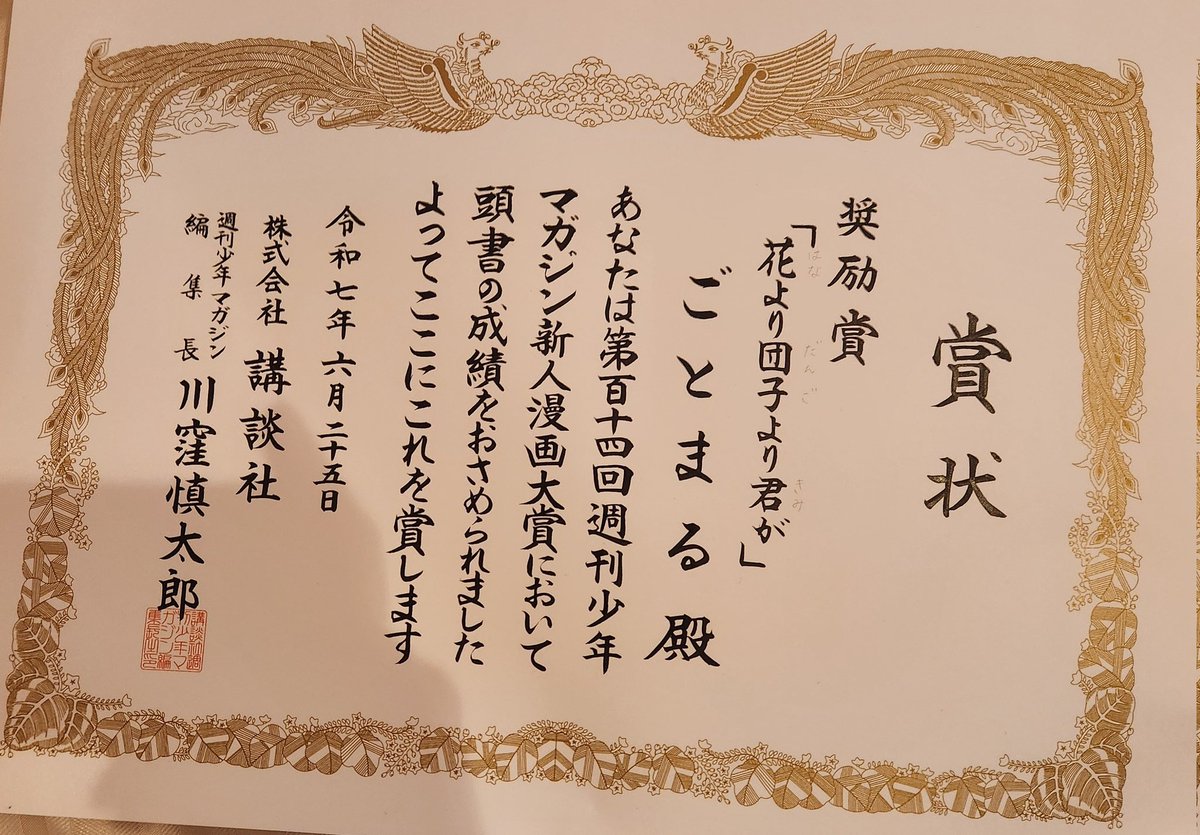 賞状
奨励賞
「花より団子より君が」
はな だんご きみ
ごとまる殿
あなたは第百十四回週刊少年
マガジン新人漫画大賞において
頭書の成績をおさめられました
よってここにこれを賞します
令和七年六月二十五日
株式会社 講談社
週刊少年マガジン
編集長 川窪慎太郎